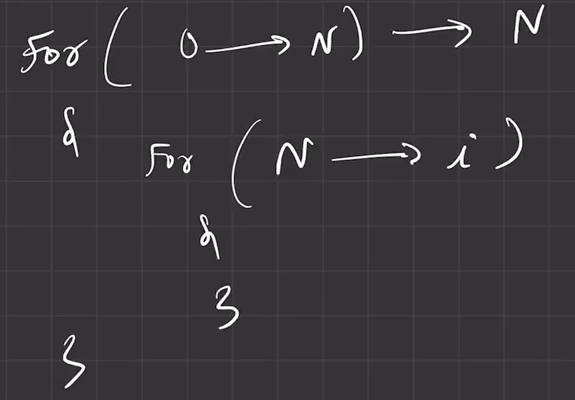 For ( 0 → N ) → N
{
For ( N → i )
{
}
}